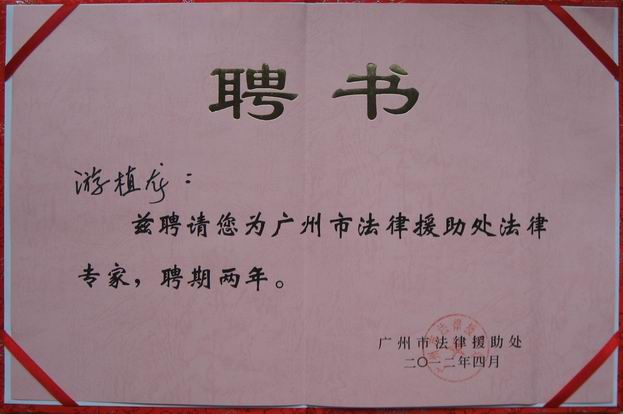 聘书
游植龙：
兹聘请您为广州市法律援助处法律
专家，聘期两年。
广州市法律援助处
二〇一二年四月